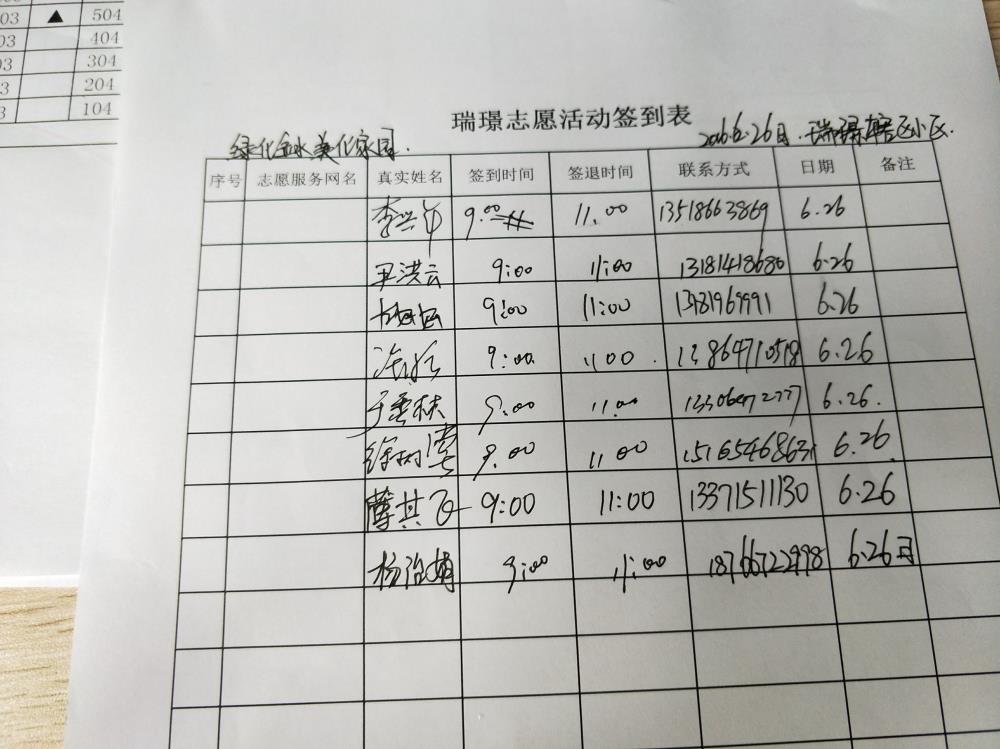 03 ▲ 504
03 404
03 304
3 204
3 104
瑞璟志愿活动签到表
绿化 美化家园. 6.26日.瑞璟辖区小区.
序号 志愿服务网名 真实姓名 签到时间 签退时间 联系方式 日期 备注
9:00 11:00 13518663869 6.26
尹洪云 9:00 11:00 13181418680 6.26
9:00 11:00 6.26
9:00 1100 13864710518 6.26
9:00 11:00 6.26.
徐 9:00 1100 15165468631 6.26
薛其飞 9:00 11:00 13371511130 6.26
杨 娟 9:00 11:00 18766722998 6.26日